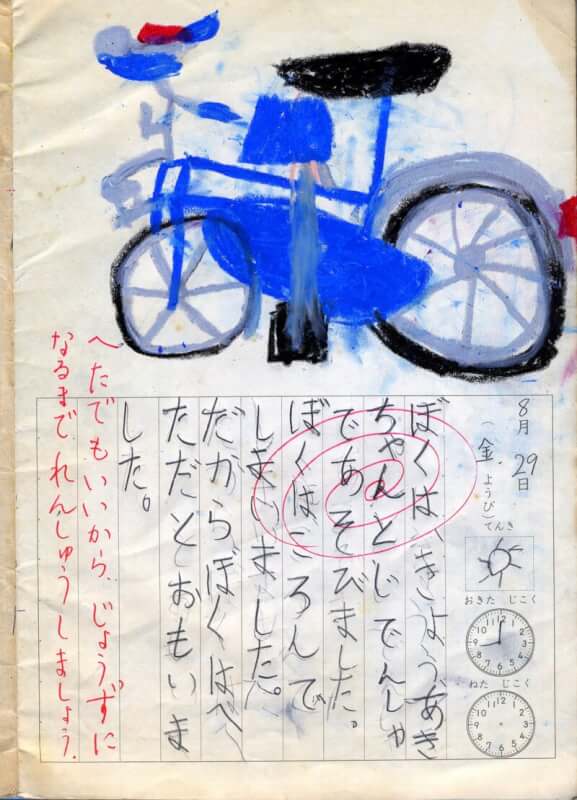 8月29日
(金ようび)てんき
おきた じこく
12 1 2 3 4 5 6 7 8 9 10 11
ねた じこく
12 1 2 3 4 5 6 7 8 9 10 11
ぼくは、きよう、あき
ちゃんとじでんしゃ
であそびました。
ぼくはころんで
しまいました。
だからぼくはへ
ただとおもいま
した。
へたでもいいから、じょうずに
なるまで れんしゅうしましょう。